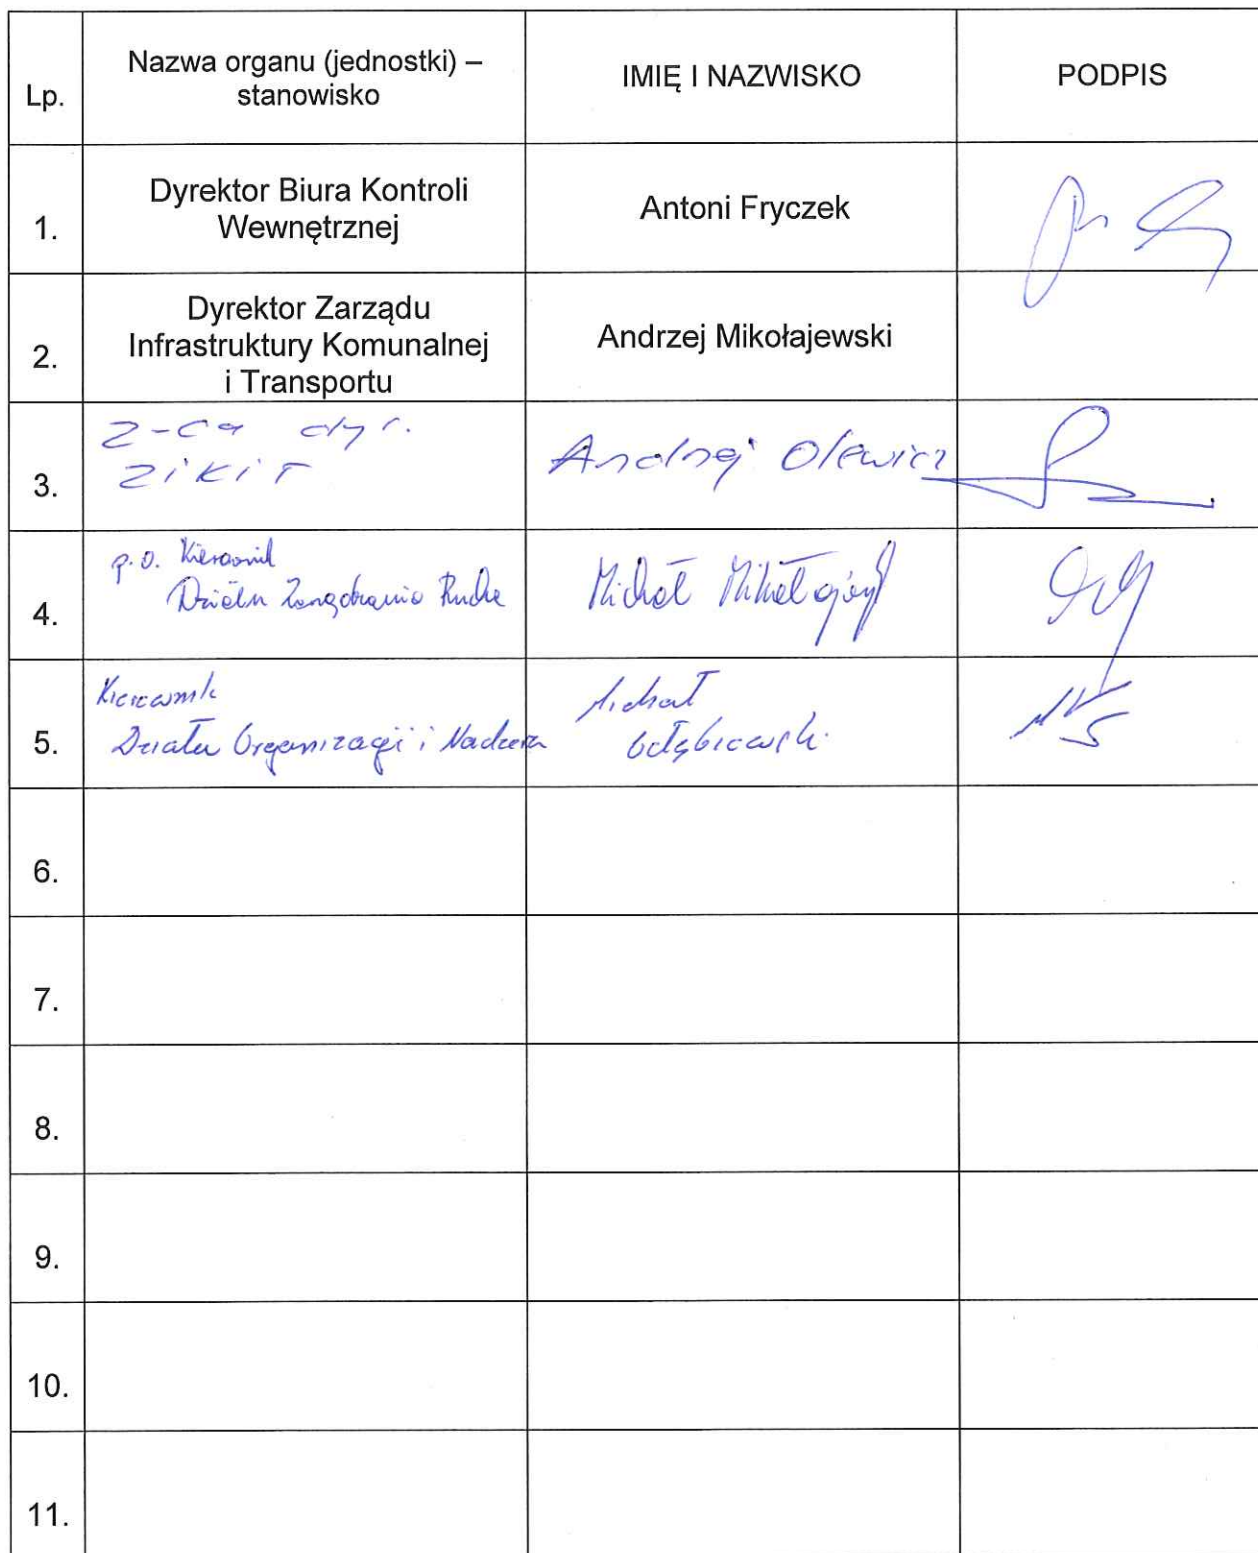 Lp.
Nazwa organu (jednostki) –
stanowisko
IMIĘ I NAZWISKO
PODPIS
1.
Dyrektor Biura Kontroli
Wewnętrznej
Antoni Fryczek
2.
Dyrektor Zarządu
Infrastruktury Komunalnej
i Transportu
Andrzej Mikołajewski
3.
z-ca dyr.
ZIKiT
Andrzej Olewicz
4.
p.o. Kierownik
Działu Zarządzania Ruchem
Michał
5.
Kierownik
Działu Organizacji i Nadzoru
Michał
6.
7.
8.
9.
10.
11.